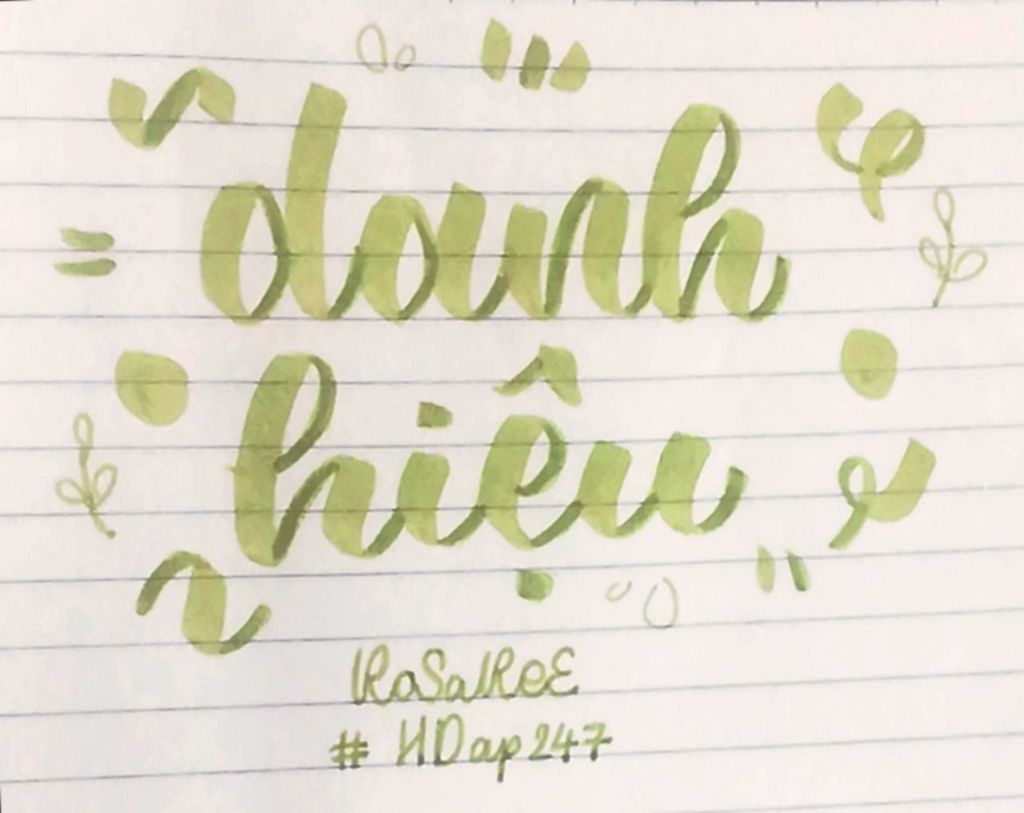 danh
hiệu
RoSaReE
# HDap247